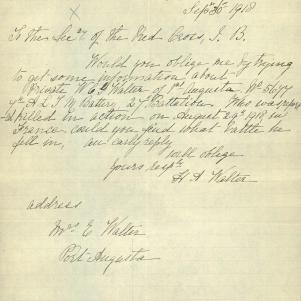 Sepr 30th 1918
To the Secy of the Red Cross, I. B.
Would you oblige me by trying
to get some information about
Private W E J Walter of Pt Augusta No
A L T M Battery 27 Battalion Who was reported
killed in action on August 29th 1918 in
France could you find what battle he
fell in, an early reply
will oblige
Yours respy
H A Walter
address
Mrs E Walter
Port Augusta